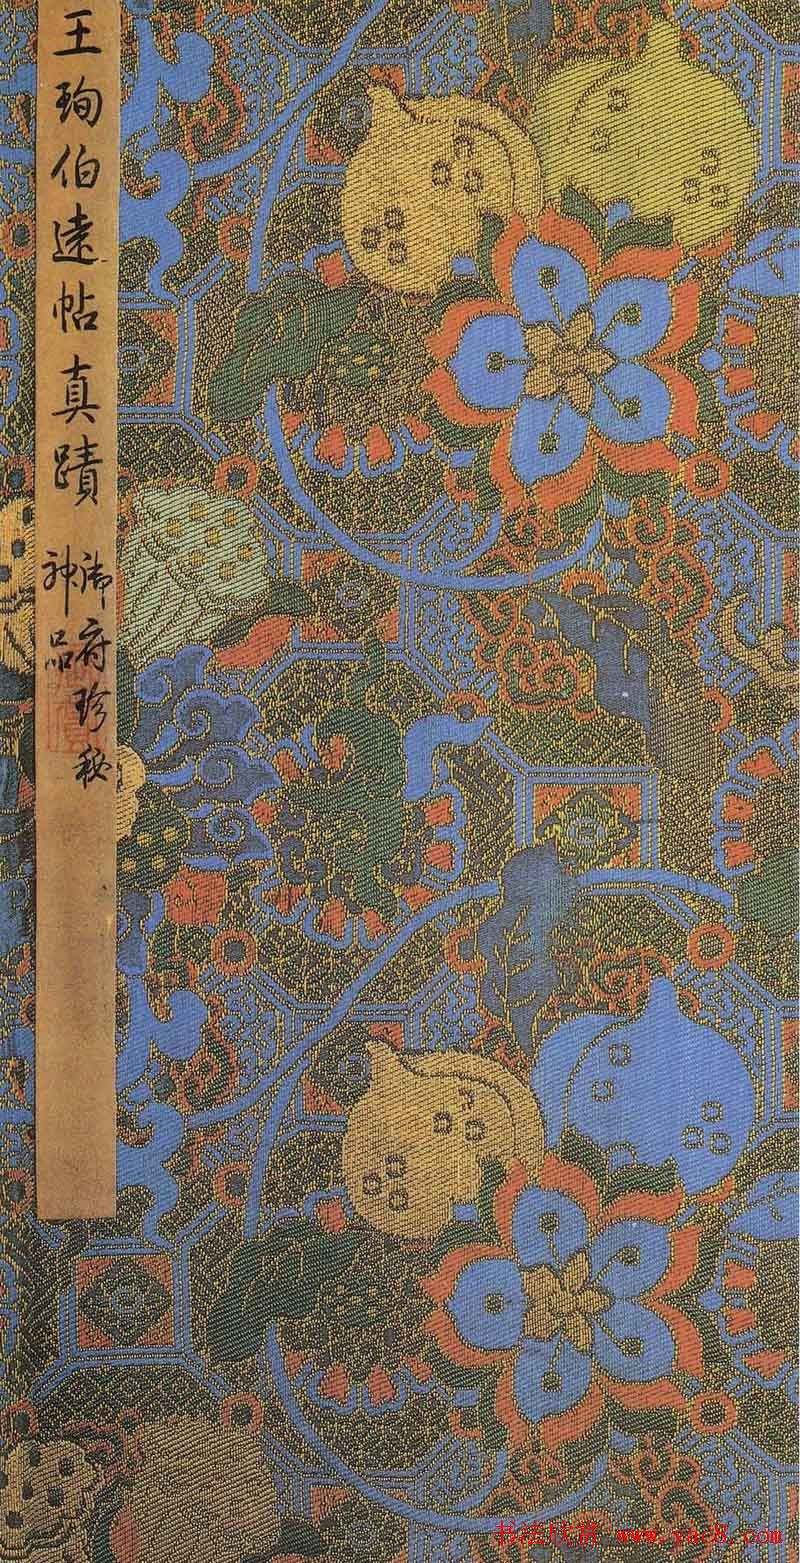 王珣伯遠帖真蹟
御府珍秘
神品
书法欣赏 www.yac8.com